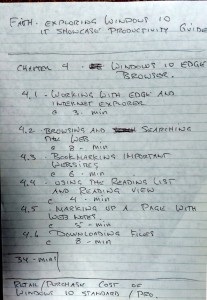 FATH- EXPLORING WINDOWS 10
IT SHOWCASE PRODUCTIVITY GUIDE
CHAPTER 4 WINDOWS 10 EDGE
BROWSER.
4.1 - WORKING WITH EDGE AND
INTERNET EXPLORER
@ 3 - min
4.2 BROWSING AND SEARCHING
THE WEB
@ 8 - min
4.3 BOOKMARKING IMPORTANT
WEBSITES
@ 6 - min
4.4 - USING THE READING LIST
AND READING VIEW
@ 4 - min
4.5 MARKING UP A PAGE WITH
WEB NOTES.
@ 5 - min
4.6 DOWNLOADING FILES
@ 8 - min
34 - min
RETAIL/PURCHASE COST OF
WINDOWS 10 STANDARD / PRO.